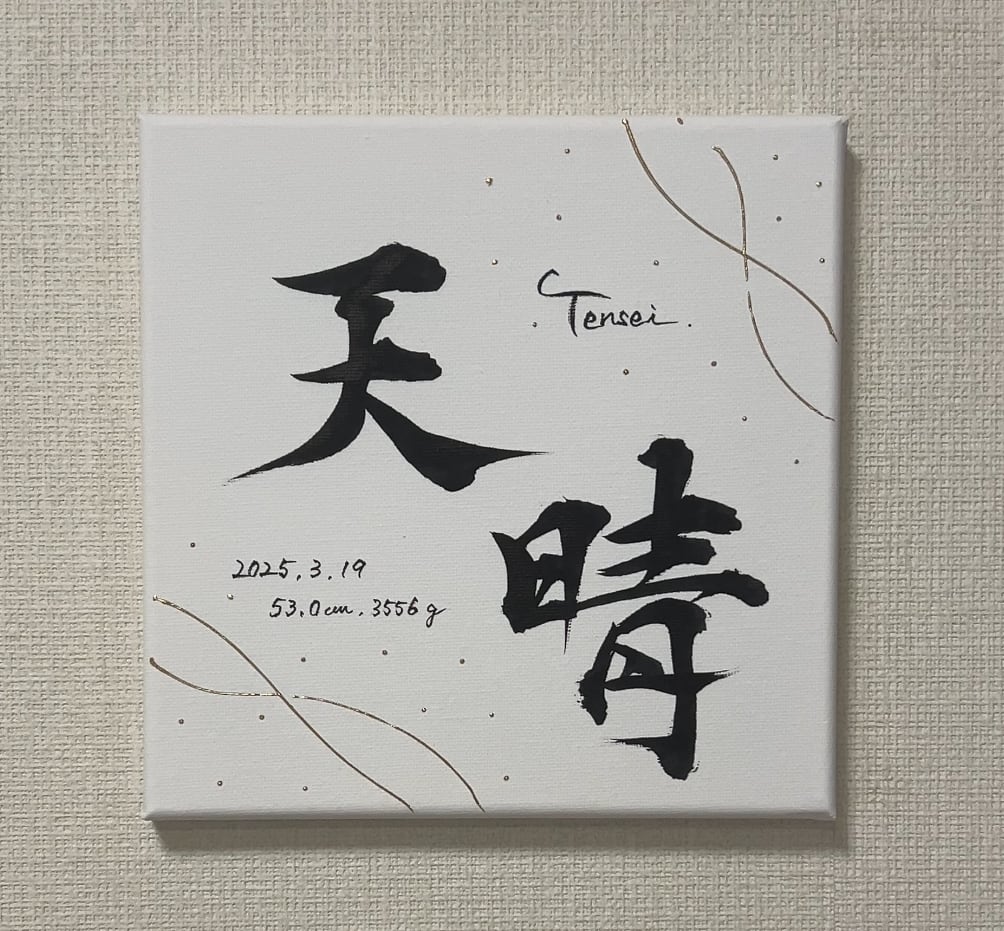 天晴
Tensei.
2025.3.19
53.0cm.3556g